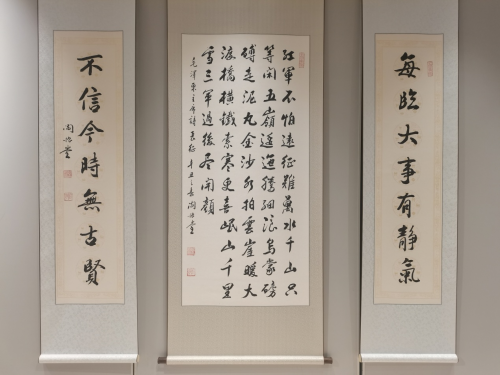 每臨大事有靜氣
紅軍不怕遠征難萬水千山只
等閑五嶺逶迤騰細浪烏蒙磅
礴走泥丸金沙水拍雲崖暖大
渡橋橫鐵索寒更喜岷山千里
雪三軍過後尽開顏
毛澤東主席詩長征
不信今時無古賢